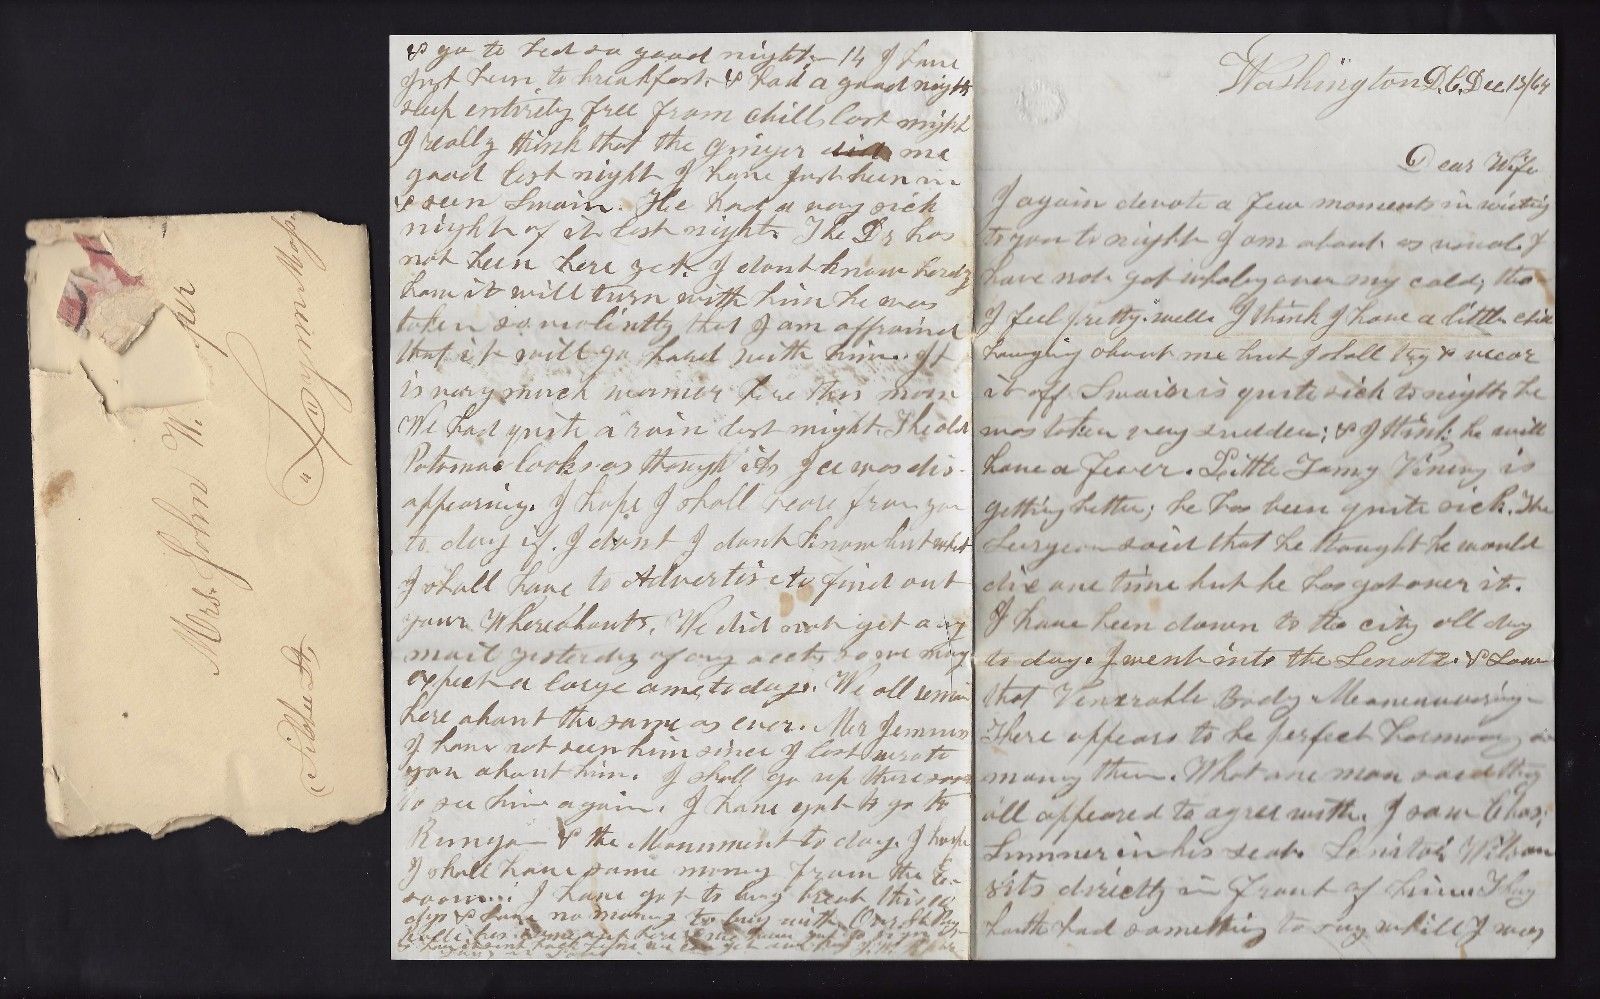 Mrs. John W. 
Lynn Mass
Silsbee St.
Washington D.C. Dec 13/64
Dear Wife
I again devote a few moments in writing
to you to night I am about as usual. I
have not got wholey over my cold, tho
I feel pretty well. I think I have a little chill
hanging about me but I shall try & wear
it off Swain is quite sick to night he
was taken very sudden; & I think he will
have a fever. Little Tamy Vining is
getting better; he has been quite sick. The
Surgeon said that he tought he would
die one time but he has got over it.
I have been down to the city all day
to day. I went into the Senate. & saw
that Venerable Body Meaneauvering
There appears to be perfect harmony a
mong them. What one man said they
all appeared to agree with. I saw Chas.
Sumner in his seat. Senitor Wilson
sits directly in front of him. They
both had something to say whill I was
& go to bed so good night. 14 I have
just been to breakfast. & had a good nights
sleep entirely free from chills last night
I really think that the ginger did me
good last night I have just been in
& seen Swain. He had a very sick
night of it last night. The Dr has
not been here yet. I dont know hardly
how it will turn with him he was
taken so violintly that I am affraid
that it will go hard with him. It
is very much warmer here this morn
We had quite a rain last night. The old
Potomac looks as though its Ice was dis-
appearing. I hope I shall heare from you
to day if I dont I dont know but what
I shall have to Advertise to find out
your Whereabouts. We did not get any
mail yesterday of any acct, so we may
expect a large one to day. We all remain
here about the same as ever. Mr
I have not seen him since I last wrote
you about him. I shall go up there soon
to see him again. I have got to go to
& the Monument to day. I hope
I shall have some money from the
soon. I have got to buy bread this
days & have no money to buy with.